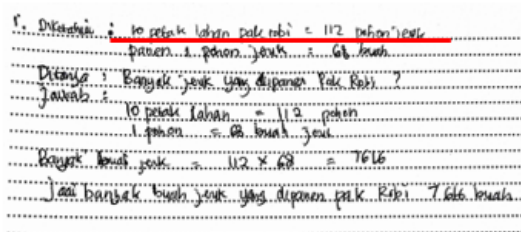 1. Diketahui : 10 petak lahan pak robi = 112 pohon jeruk
panen 1 pohon jeruk = 68 buah
Ditanya : Banyak jeruk yang dipanen Pak Robi ?
Jawab :
10 petak lahan = 112 pohon
1 pohon = 68 buah jeruk
Banyak buah jeruk = 112 x 68 = 7616
Jadi banyak buah jeruk yang dipanen pak Robi 7.616 buah